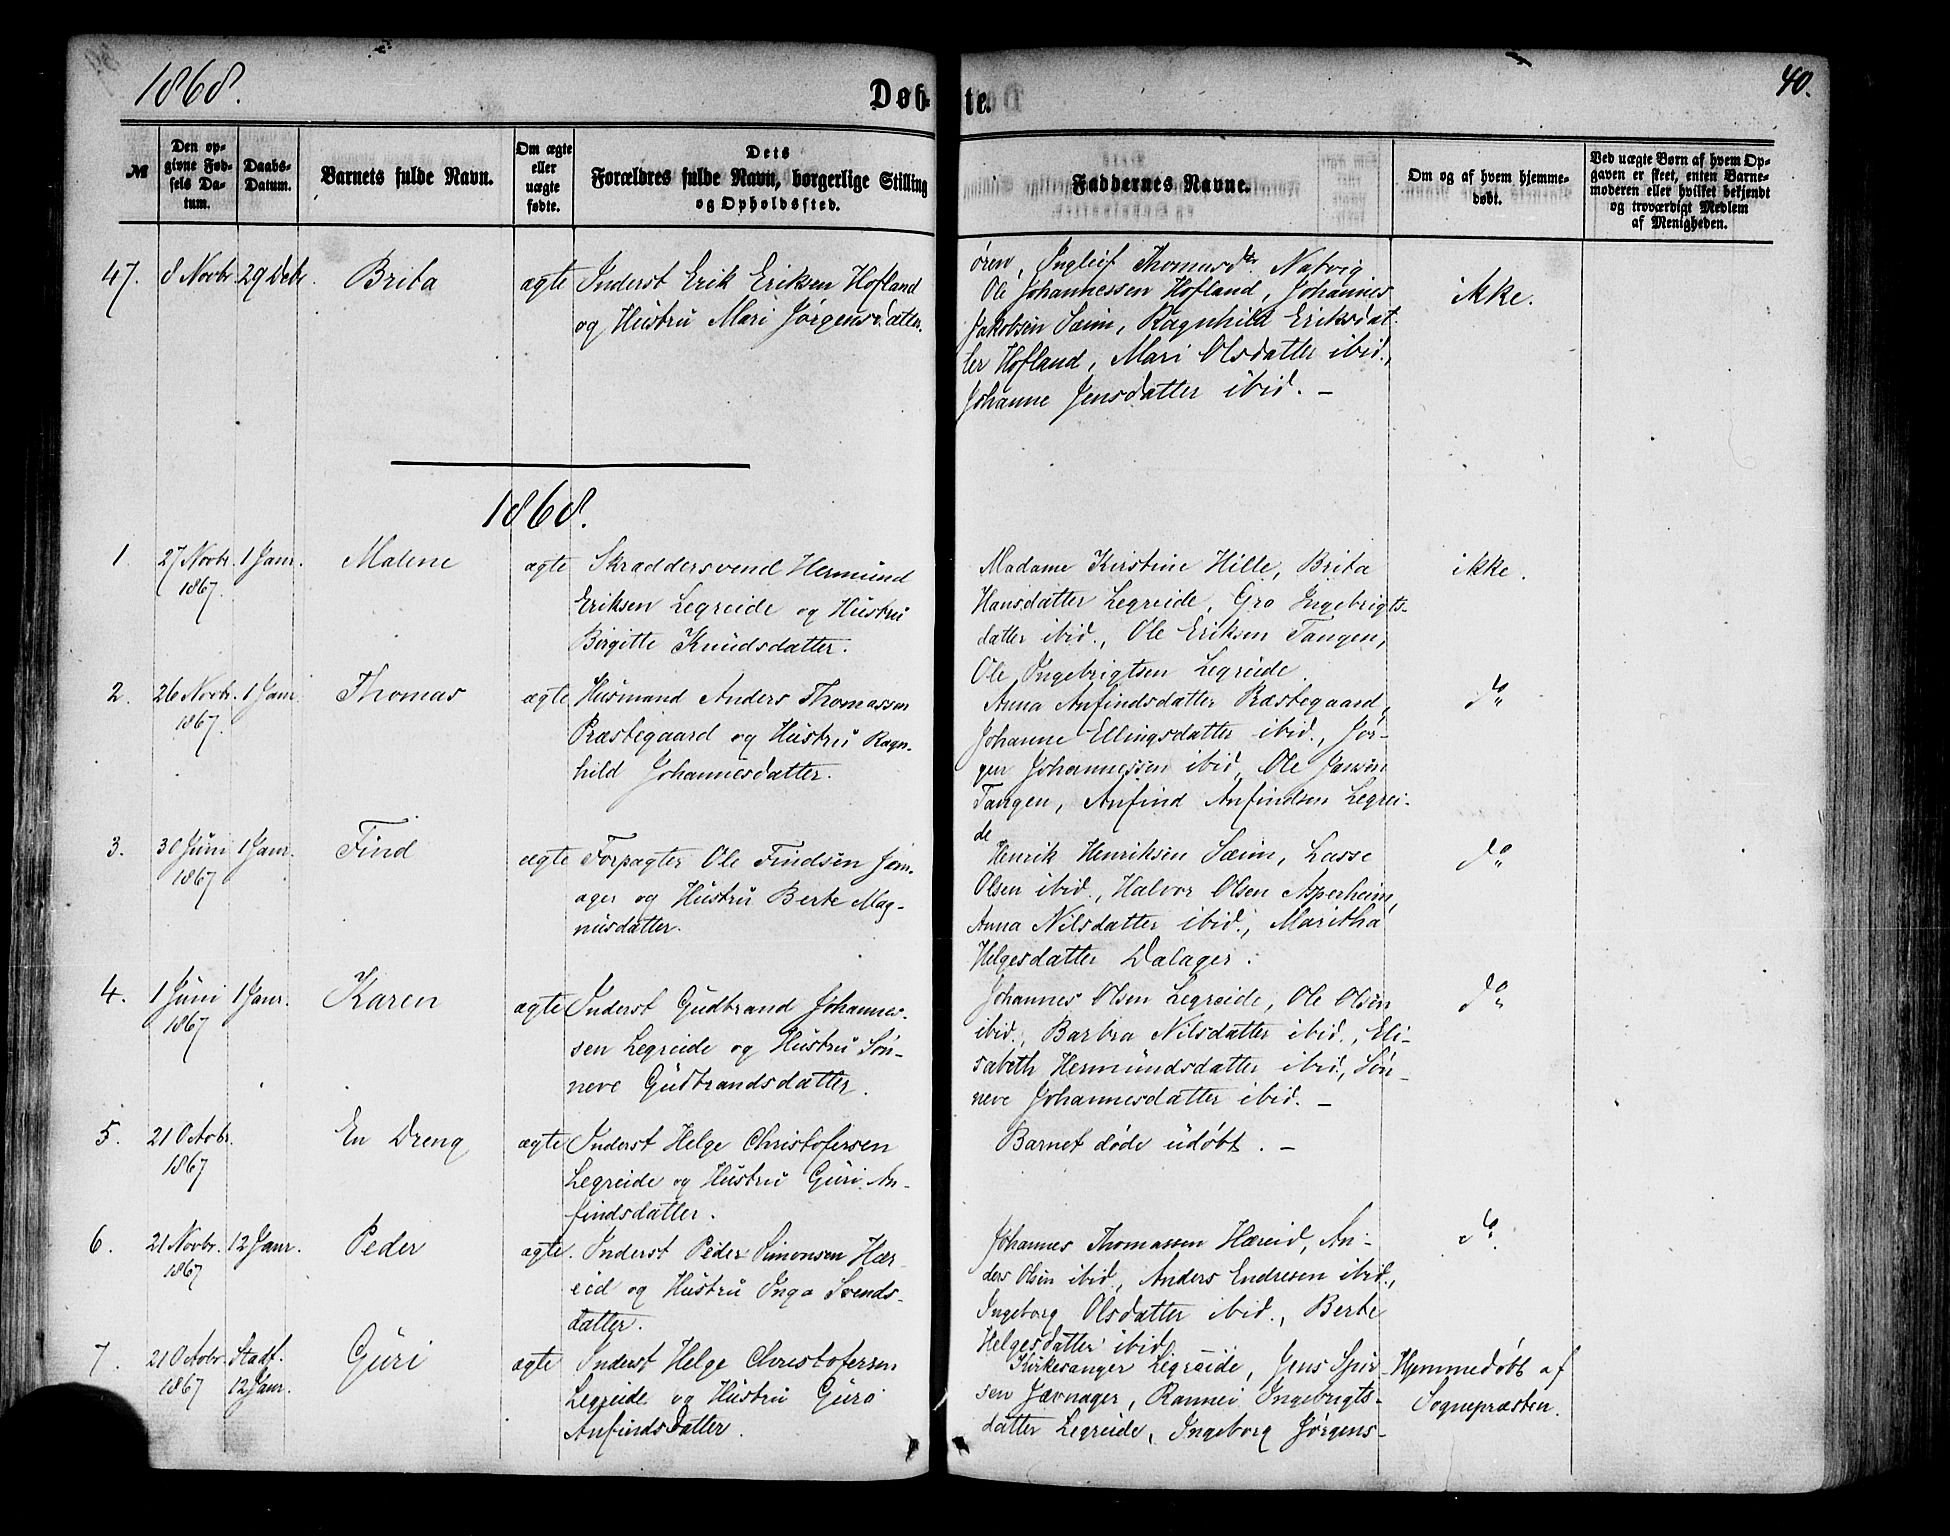 1868.
Døb-
te.
40.
№
Den op-
givne Fød-
sels Da-
tum.
Daabs-
Datum.
Barnets fulde Navn.
Om ægte
eller
uægte
fødte.
Dets
Forældres fulde Navn, borgerlige Stilling
og Opholdssted.
Faddernes Navne.
Om og af hvem hjemme-
døbt.
Ved uægte Børn af hvem Op-
gaven er skeet, enten Barne-
moderen eller hvilket bekjendt
og troværdigt Medlem
af Menigheden.
47. 8 Novbr. 29 Debr. Brita ægte Inderst Erik Eriksen Hofland
og Hustru Mari Jørgensdatter.
ören, Ingleif Thomasdtr. Natvig
Ole Johannessen Hofland, Johannes
Jakobsen Sæim, Ragnhild Eriksdat-
ter Hofland, Mari Olsdatter ibid.,
Johanne Jensdatter ibid. –
ikke.
1868.
1. 27 Novbr. 1 Janr. Malene ægte Skræddersvend Hermund
1867. Eriksen Legreide og Hustru
Birgitte Knudsdatter.
Madame Kirstine Hille, Brita
Hansdatter Legreide, Gro Ingebrigts-
datter ibid., Ole Eriksen Tangen,
Ole Ingebrigtsen Legreide.
ikke.
2. 26 Novbr. 1 Janr. Thomas ægte Husmand Anders Thomassen
1867. Præstegaard og Hustru Ragn-
hild Johannesdatter.
Anna Anfindsdatter Præstegaard,
Johanne Ellingsdatter ibid., Jør-
gen Johannessen ibid, Ole Jansen
Tangen, Anfind Anfindsen Legrei-
de
do
3. 30 Juni 1 Janr. Find ægte Forpagter Ole Findsen Jam-
1867 ager og Hustru Berte Mag-
nusdatter.
Henrik Henriksen Sæim, Lasse
Olsen ibid., Halvor Olsen Asperheim,
Anna Nilsdatter ibid., Maritha
Helgesdatter Dalager.
do
4. 1 Juni 1 Janr. Karen ægte Inderst Gudbrand Johannes-
1867 sen Legreide og Hustru Søn-
neve Gudbrandsdatter.
Johannes Olsen Legreide, Ole Olsen
ibid., Barbra Nilsdatter ibid., Eli-
sabeth Hermundsdatter ibid., Søn-
neve Johannesdatter ibid. –
do
5. 21 Octobr. En Dreng ægte Inderst Helge Christofersen
1867 Legreide og Hustru Guri An-
findsdatter.
Barnet døde udøbt. –
6. 21 Novbr. 12 Janr. Peder ægte. Inderst Peder Simonsen Hær-
1867 eid og Hustru Inga Svends-
datter.
Johannes Thomassen Hæreid, An-
ders Olsen ibid, Anders Endresen ibid.,
Ingeborg Olsdatter ibid., Berte
Helgesdatter ibid.
do
7. 21 Octobr. Stadf. Guri ægte Inderst Helge Christofersen
1867 12 Janr. Legreide og Hustru Guro
Anfindsdatter.
Kirkesanger Legreide, Jens
sen Jævnager, Rannei Ingebrigts-
datter Legreide, Ingeborg Jørgens-
Hjemmedøbt af
Sognepræsten.